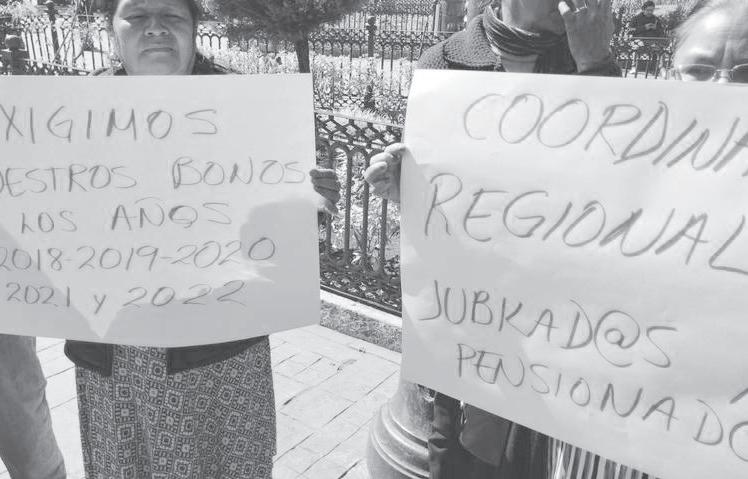 XIGIMOS
UESTROS BONOS
LOS AÑOS
2018-2019-2020
2021 y 2022
COORDINA
REGIONAL
JUBILAD@S
PENSIONADO